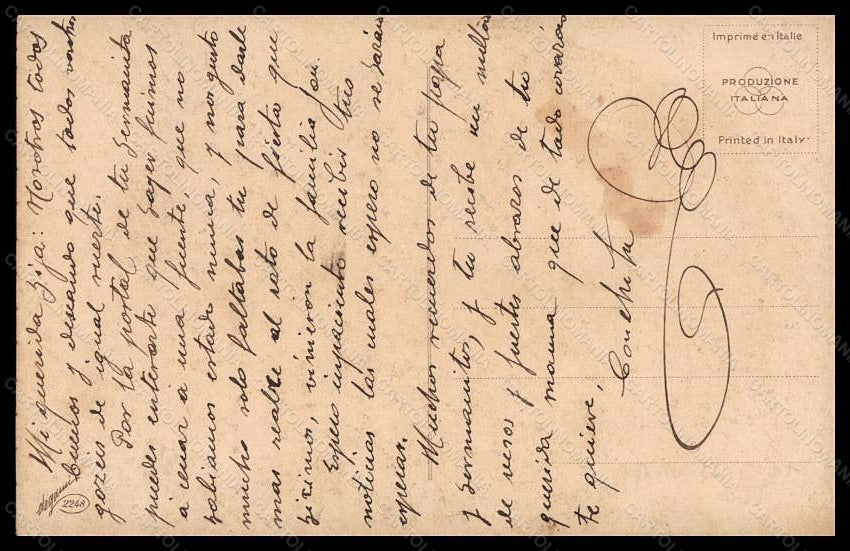 Mi querida hija: Nosotros todos
buenos y deseando que todos vosotros
gozeis de igual suerte.
Por la postal de tu hermanita
puedes enterarte que hayer fuimos
a cenar a una fuente, que no
habiamos estado nunca, y nos gusto
mucho solo faltabas tu para darle
mas realce al rato de fiesta que
hicimos, vinieron la familia
Espero impaciente recibir tus
noticias las cuales espero no se harán
esperar.
Muchos recuerdos de tu papa
y hermanitos, y tu recibe un millón
de vesos y fuertes abrazos de tu
querida mama que de todo corazón
te quiere,
Conchita
Imprimé en Italie
PRODUZIONE
ITALIANA
Printed in Italy
degami
2248
CARTOLINOMANIA